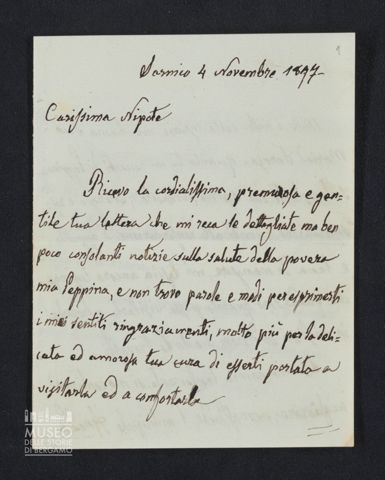 1
Sarnico 4 Novembre 1897
Carissima Nipote
Ricevo la cordialissima, premurosa e gen-
tile tua lettera che mi reca le dettagliate ma ben
poco consolanti notizie sulla salute della povera
mia Peppina, e non trovo parole e modi per esprimerti
i miei sentiti ringraziamenti, molto più per la deli-
cata ed amorosa tua cura di esserti portata a
visitarla ed a confortarla
MUSEO
DELLE STORIE
DI BERGAMO